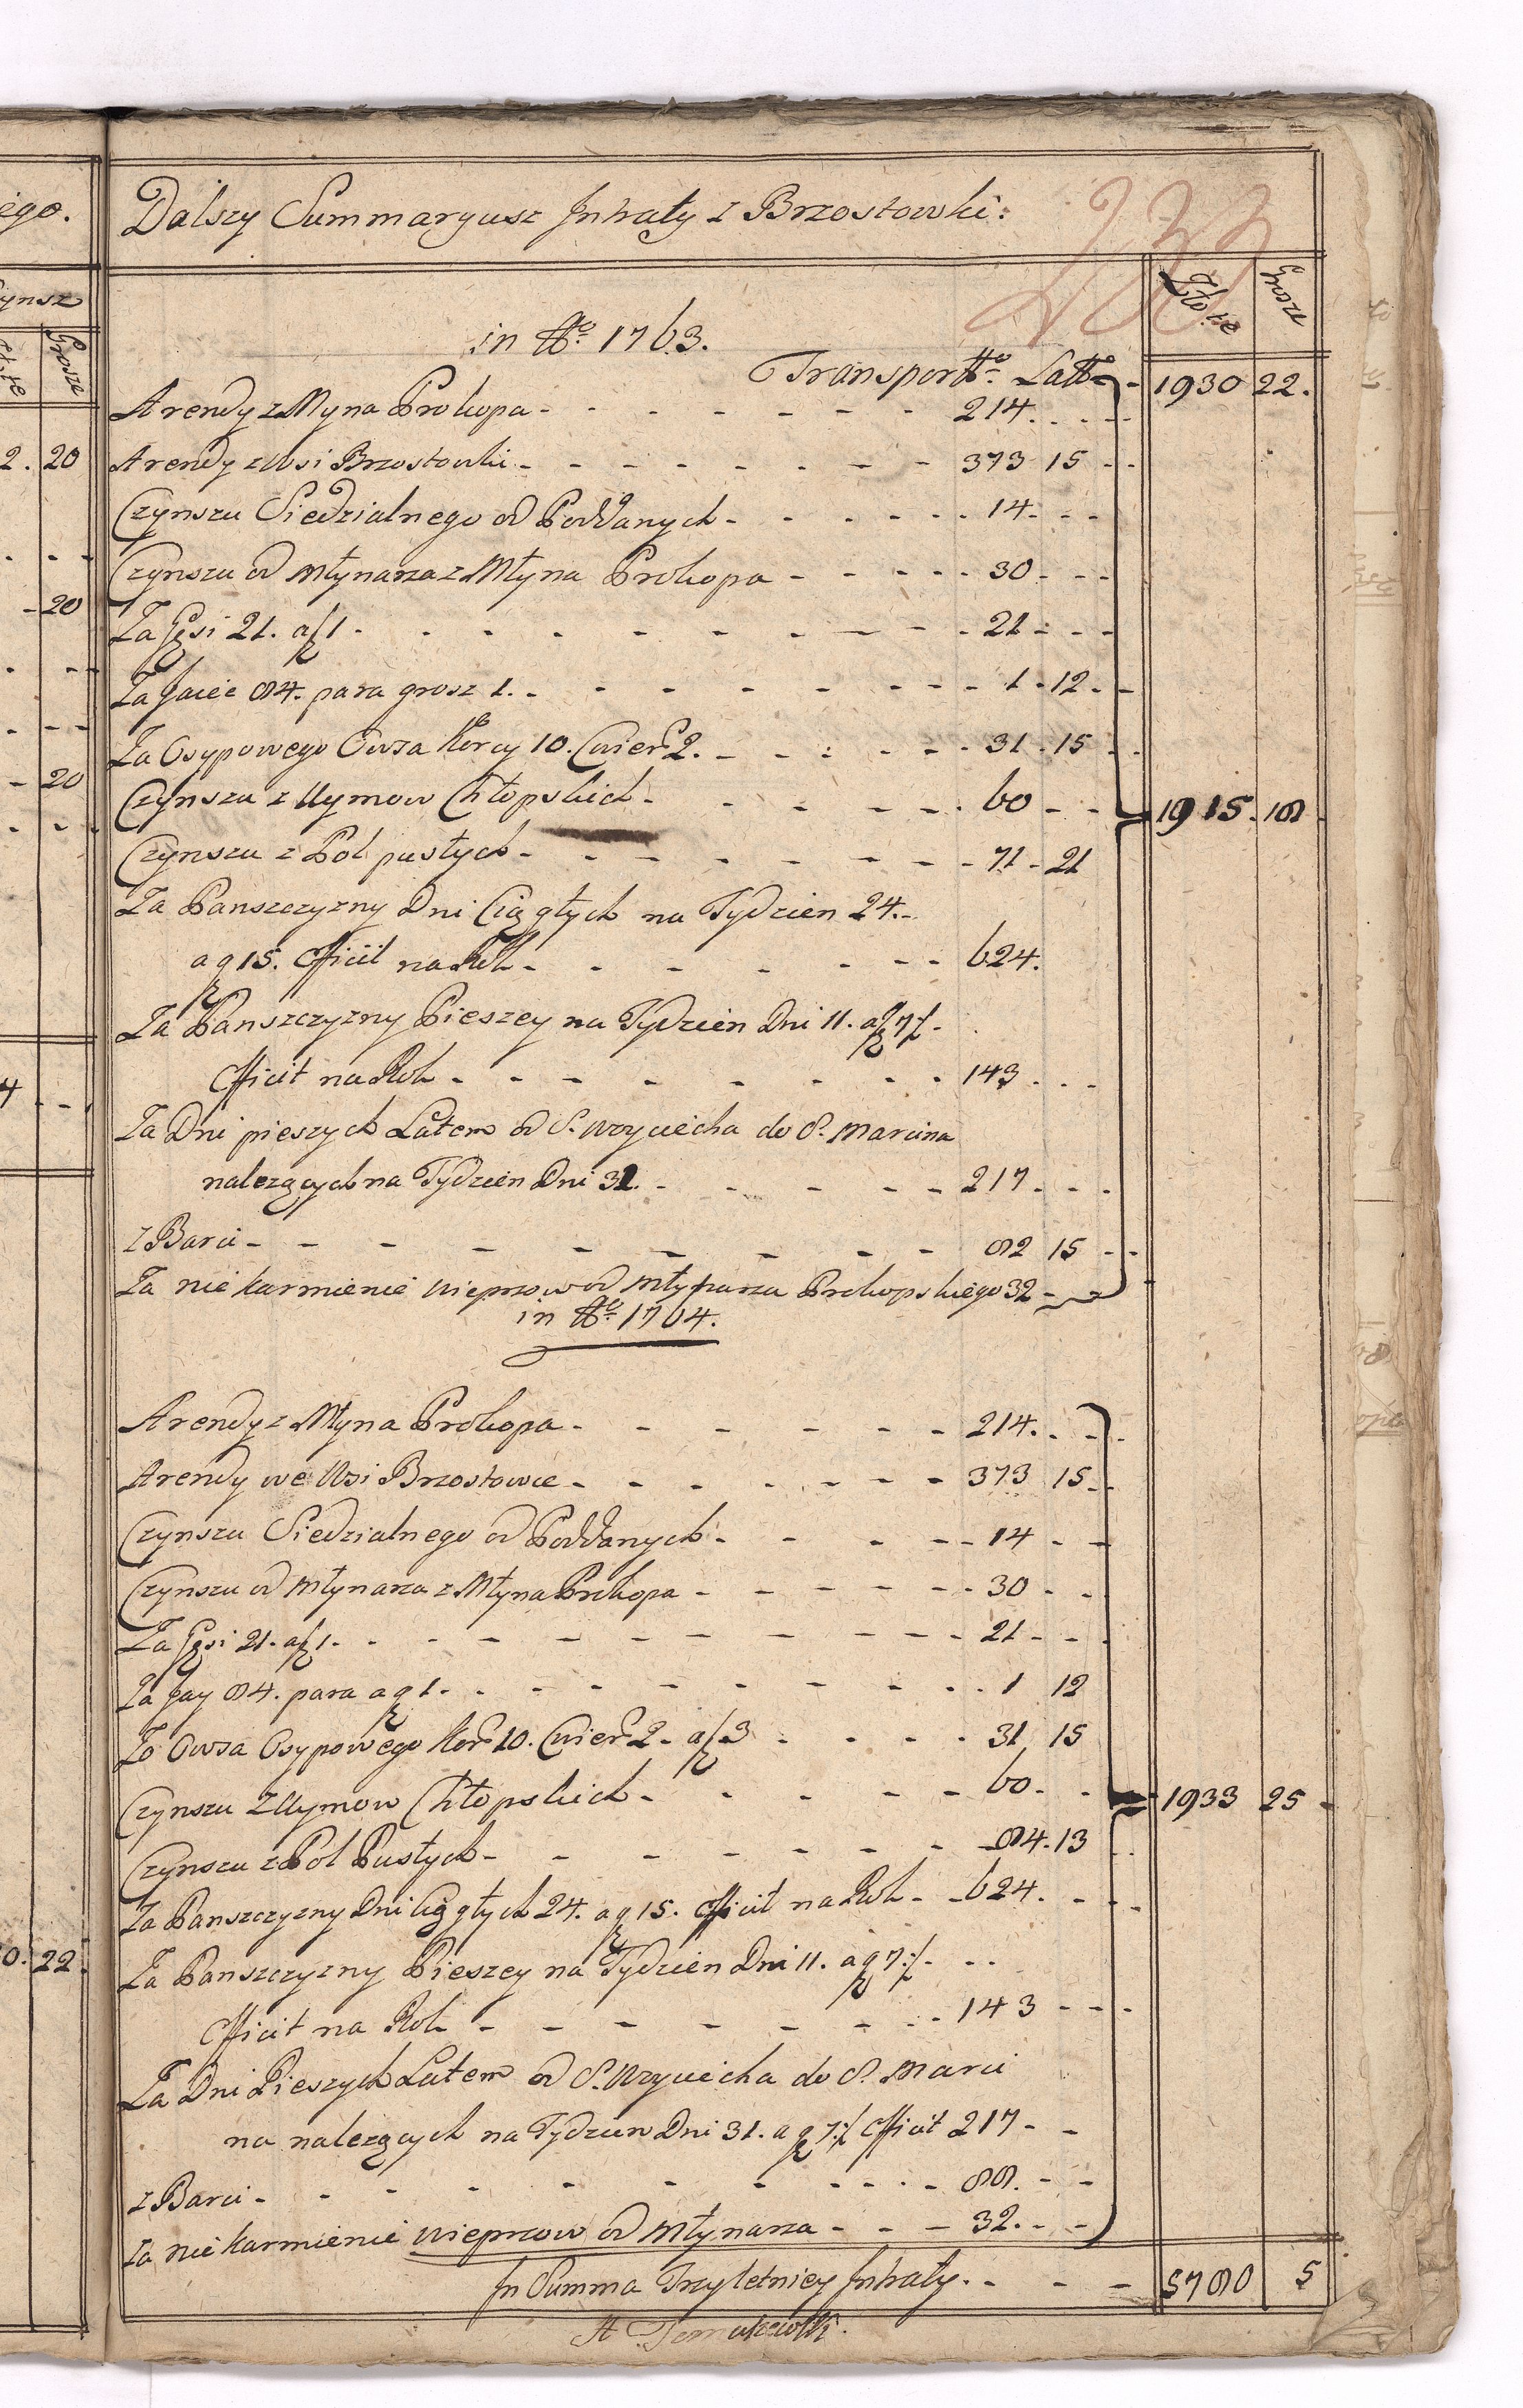 ego.
Dalszy Summaryusz Intraty z Brzostowki:
233
Czynsz
Złote
Grosze
Złote
Grosze
in Ao. 1763.
Transport Lat
1930 22.
Arendy z Myna Prokopa - 214.
2. 20
Arendy z Wsi Brzostowki - 373 15
Czynszu Siedzialnego od Poddanych - 14
Czynszu od Młynarza z Młyna Prokopa - 30
20
Za Gęsi 21. a f 1 - 21
Za Jaiec 84. para grosz 1. - 1 - 12
Za Osypowego Owsa Korcy 10. Cwierc 2. - 31 - 15
20
Czynszu z Uymow Chłopskich - 60
1915. 18
Czynszu z Pol pustych - 71 - 21
Za Panszczyzny Dni Ciągłych na Tydzien 24.
a g 15. Efficit na Rok - 624.
Za Panszczyzny Pieszey na Tydzien Dni 11. a g 7½
Efficit na Rok - 143
4
Za Dni pieszych Latem od S. Woyciecha do S. Marcina
należących na Tydzien Dni 31. - 217
z Barci - 82 15
Za nie karmienie wieprzow od Młynarza Prokopskiego 32
in Ao. 1764.
Arendy z Młyna Prokopa - 214.
Arendy we Wsi Brzostowce - 373 15
Czynszu Siedzialnego od Poddanych - 14
Czynszu od Młynarza z Młyna Prokopa - 30
Za Gęsi 21. a f 1. - 21
Za Jay 84. para a g 1. - 1 12
Za Owsa Osypowego Kor. 10. Cwierc 2. a f 3 - 31 15
Czynszu z Uymow Chłopskich - 60
1933 25
Czynszu z Pol Pustych - 84. 13
Za Panszczyzny Dni Ciągłych 24. a g 15. Efficit na Rok - 624.
0. 22.
Za Panszczyzny Pieszey na Tydzien Dni 11. a g 7½
Efficit na Rok - 143
Za Dni Pieszych Latem od S. Woyciecha do S. Marci
na należących na Tydzien Dni 31. a g 7½ Efficit 217
z Barci - 88.
Za nie karmienie wieprzow od Młynarza - 32.
In Summa Trzyletniey Intraty. - 5780 5